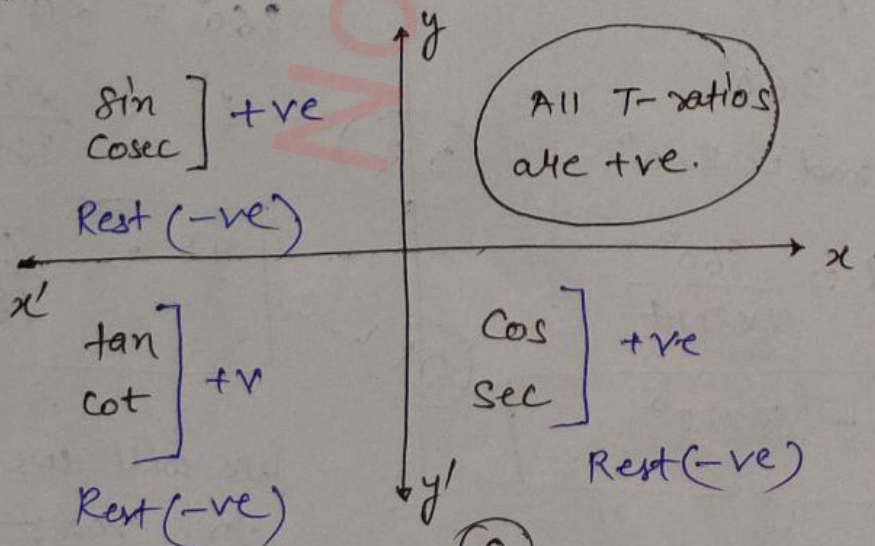 y
sin
cosec ] +ve
Rest (-ve)
All T-ratios
are +ve.
x'
x
tan
cot ] +v
Rest (-ve)
cos
sec ] +ve
Rest (-ve)
y'